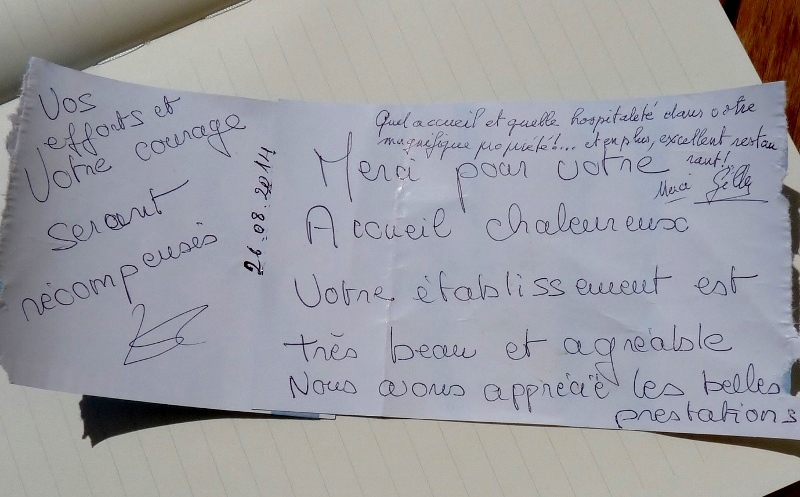 Vos
efforts et
Votre courage
seront
récompensés
26.08.2014
Quel accueil et quelle hospitalité dans votre
magnifique propriété!... et en plus, excellent restau
rant!
Merci Gilly
Merci pour votre
Accueil chaleureux
Votre établissement est
très beau et agréable
Nous avons apprécié les belles
prestations